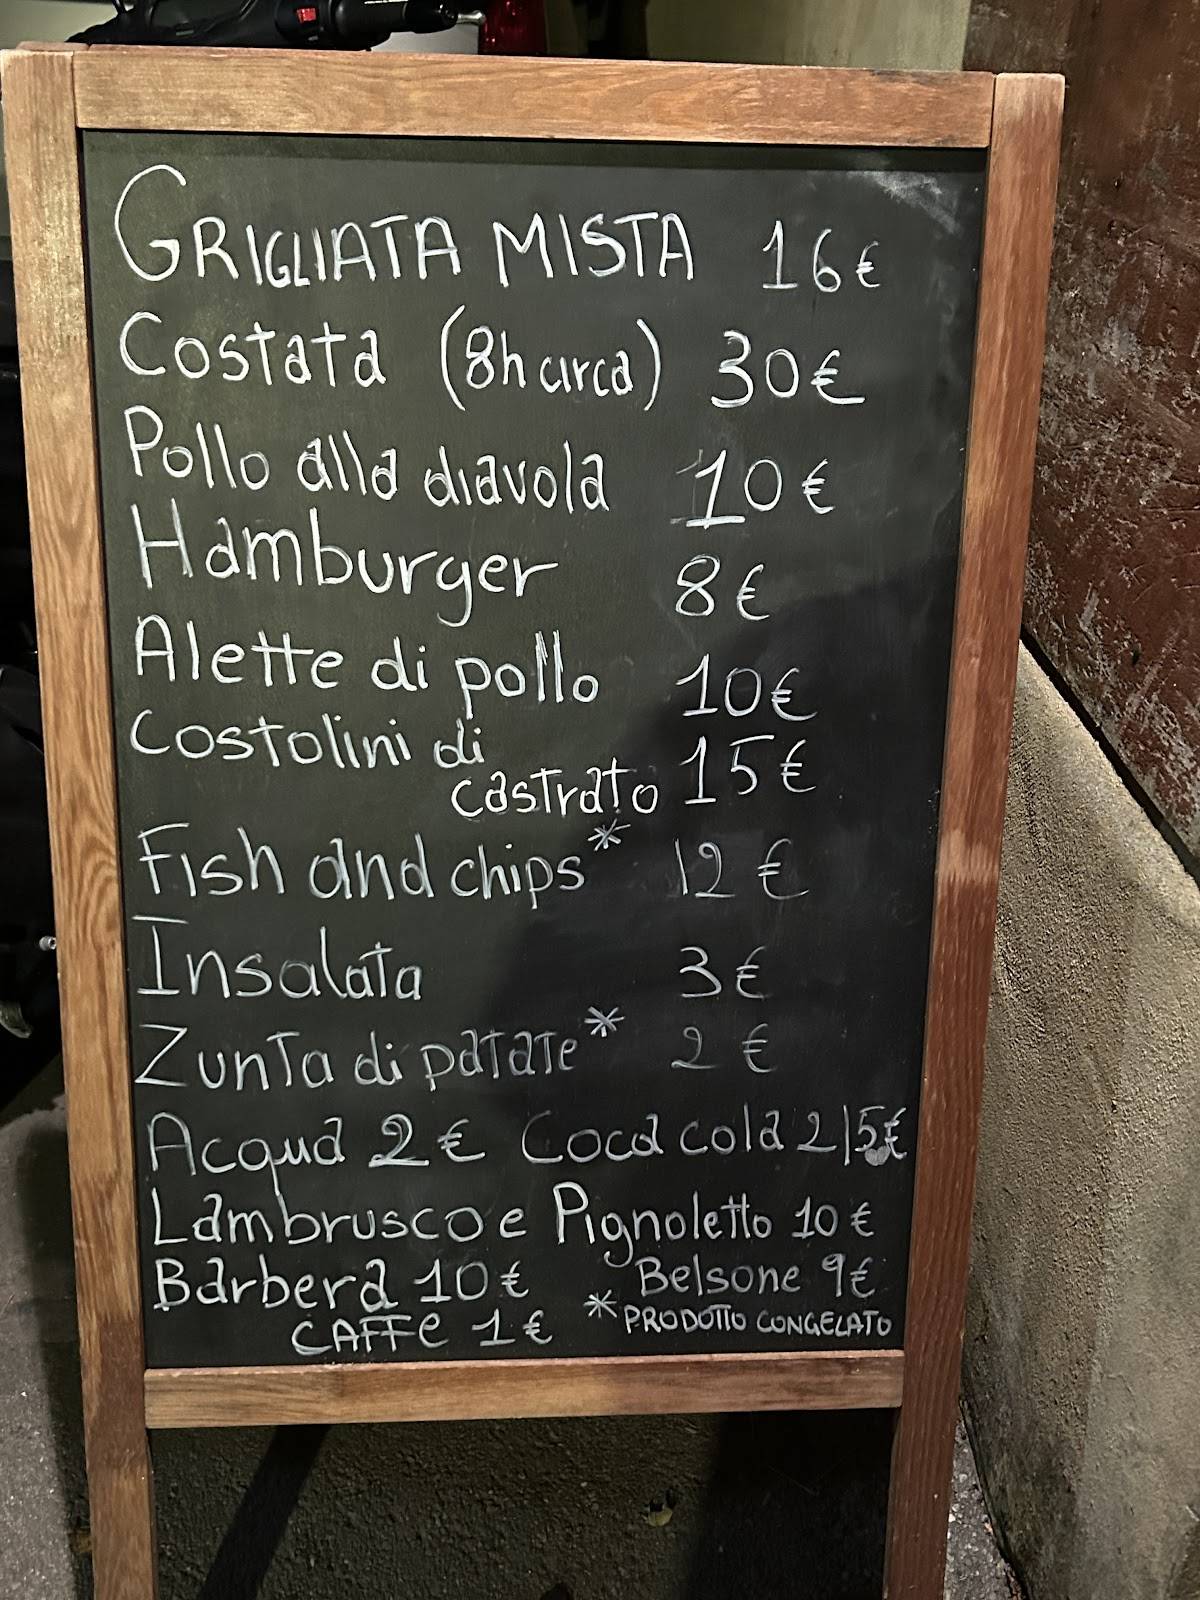 GRIGLIATA MISTA 16€
Costata (8h circa) 30€
Pollo alla diavola 10€
Hamburger 8€
Alette di pollo 10€
Costolini di
castrato 15€
Fish and chips* 12€
Insalata 3€
Zunta di patate* 2€
Acqua 2€ Coca cola 2,5€
Lambrusco e Pignoletto 10€
Barbera 10€ Belsone 9€
CAFFE 1€ *PRODOTTO CONGELATO